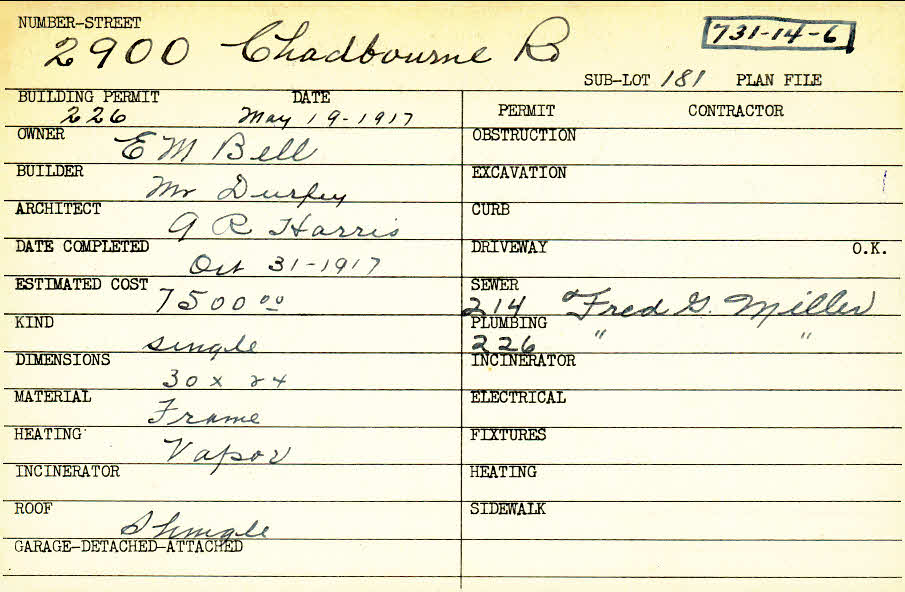 NUMBER-STREET
2900 Chadbourne Rd
731-14-6
SUB-LOT 181 PLAN FILE
BUILDING PERMIT DATE
226 May 19-1917
OWNER
E M Bell
BUILDER
Mr Durfey
ARCHITECT
A R Harris
DATE COMPLETED
Oct 31-1917
ESTIMATED COST
7500 00
KIND
single
DIMENSIONS
30 x 24
MATERIAL
Frame
HEATING
Vapor
INCINERATOR
ROOF
Shingle
GARAGE-DETACHED-ATTACHED
PERMIT CONTRACTOR
OBSTRUCTION
EXCAVATION
CURB
DRIVEWAY O.K.
SEWER
214 Fred G. Miller
PLUMBING
226 " "
INCINERATOR
ELECTRICAL
FIXTURES
HEATING
SIDEWALK